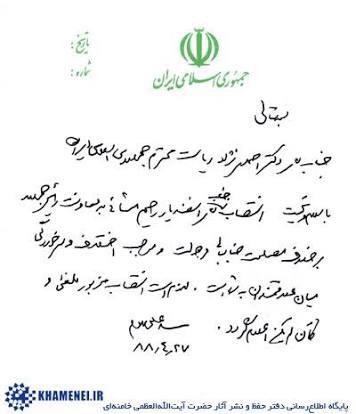 تاریخ:
شماره:
جمهوری اسلامی ایران
بسمه تعالی
جناب آقای دکتر احمدی نژاد ریاست محترم جمهوری اسلامی ایران
با سلام و تحیت انتصاب جناب آقای اسفندیار رحیم مشائی به معاونت رئیس جمهور
بر خلاف مصلحت جنابعالی و دولت و موجب اختلاف و سرخوردگی
میان علاقمندان به شما است. لازم است انتصاب مزبور ملغی و
کان لم یکن اعلام گردد.
سید علی خامنه‌ای
۸۸/۴/۲۷
KHAMENEI.IR
پایگاه اطلاع‌رسانی دفتر حفظ و نشر آثار حضرت آیت‌الله‌العظمی خامنه‌ای